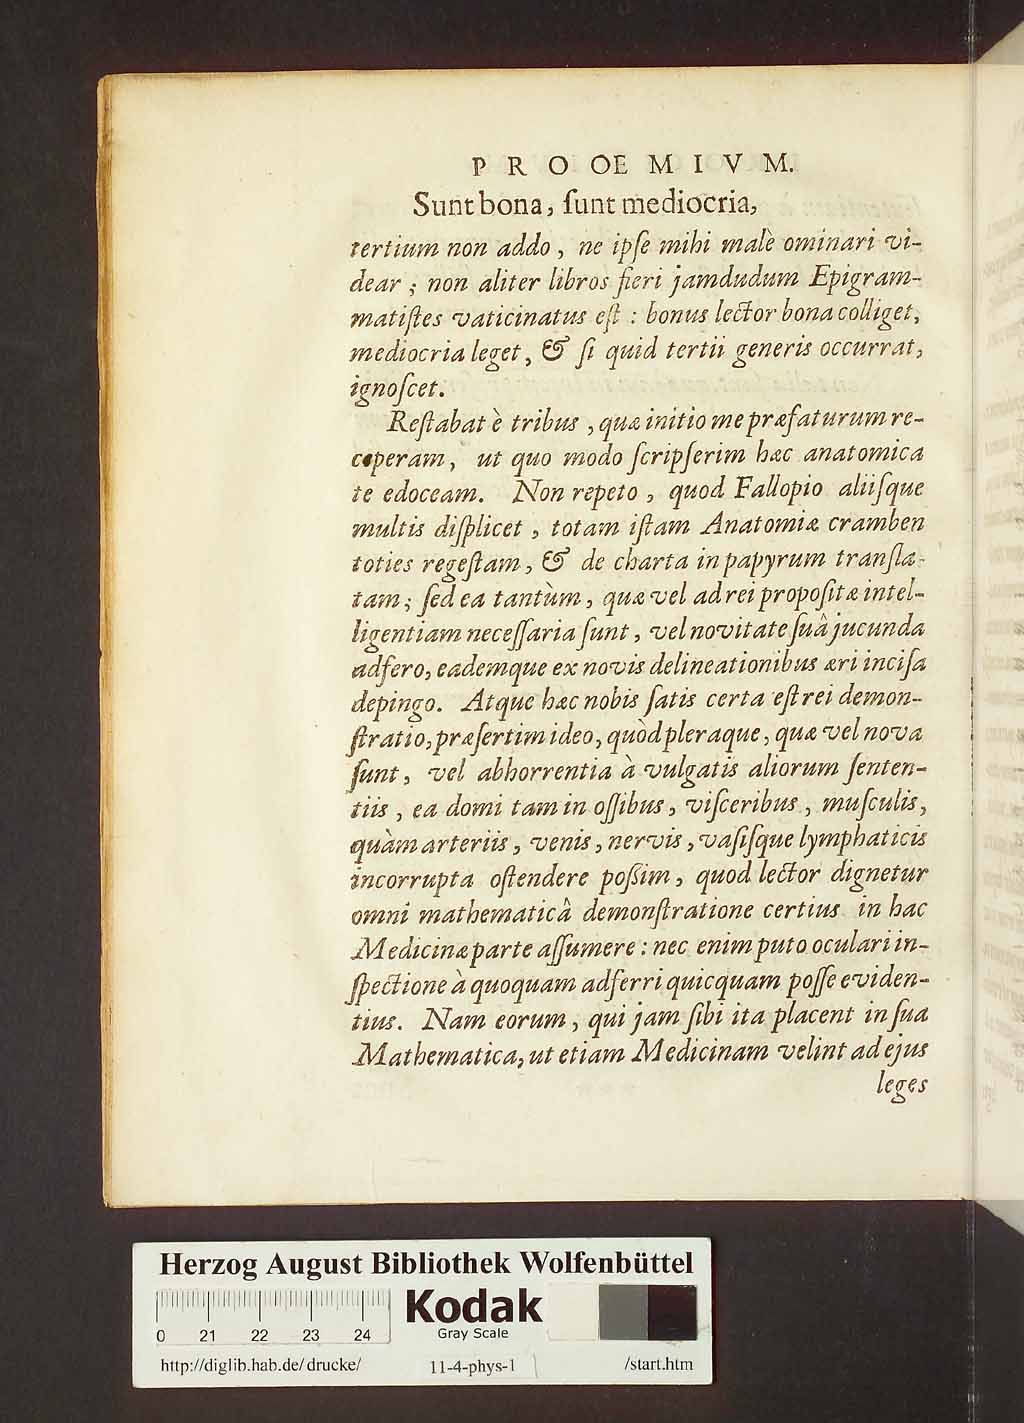 PROOEMIVM.
Sunt bona, ſunt mediocria,
tertium non addo, ne ipſe mihi malè ominari vi-
dear; non aliter libros fieri jamdudum Epigram-
matiſtes vaticinatus eſt: bonus lector bona colliget,
mediocria leget, & ſi quid tertii generis occurrat,
ignoſcet.
Reſtabat è tribus, quæ initio me præfaturum re-
ceperam, ut quo modo ſcripſerim hæc anatomica
te edoceam. Non repeto, quod Fallopio aliiſque
multis diſplicet, totam iſtam Anatomiæ cramben
toties regeſtam, & de charta in papyrum tranſla-
tam; ſed ea tantùm, quæ vel ad rei propoſitæ intel-
ligentiam neceſſaria ſunt, vel novitate ſuâ jucunda
adfero, eademque ex novis delineationibus æri inciſa
depingo. Atque hæc nobis ſatis certa eſt rei demon-
ſtratio, præſertim ideo, quòd pleraque, quæ vel nova
ſunt, vel abhorrentia à vulgatis aliorum ſenten-
tiis, ea domi tam in oſſibus, viſceribus, muſculis,
quàm arteriis, venis, nervis, vaſiſque lymphaticis
incorrupta oſtendere poſſim, quod lector dignetur
omni mathematicâ demonſtratione certius in hac
Medicinæ parte aſſumere: nec enim puto oculari in-
ſpectione à quoquam adferri quicquam poſſe eviden-
tius. Nam eorum, qui jam ſibi ita placent in ſua
Mathematica, ut etiam Medicinam velint ad ejus
leges
Herzog August Bibliothek Wolfenbüttel
0 21 22 23 24
Kodak
Gray Scale
http://diglib.hab.de/drucke/ 11-4-phys-1 /start.htm